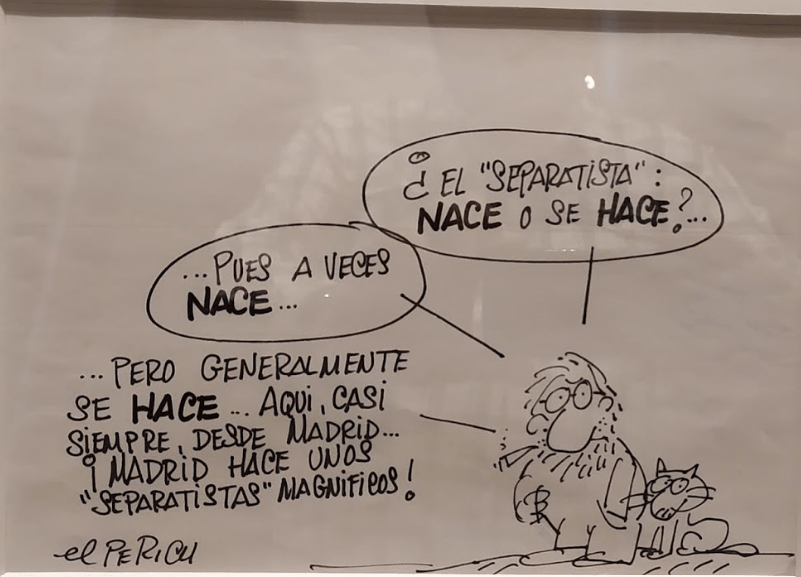 ¿EL "SEPARATISTA":
NACE O SE HACE?...
...PUES A VECES
NACE...
...PERO GENERALMENTE
SE HACE... AQUI, CASI
SIEMPRE, DESDE MADRID...
¡MADRID HACE UNOS
"SEPARATISTAS" MAGNIFICOS!
el PERICH